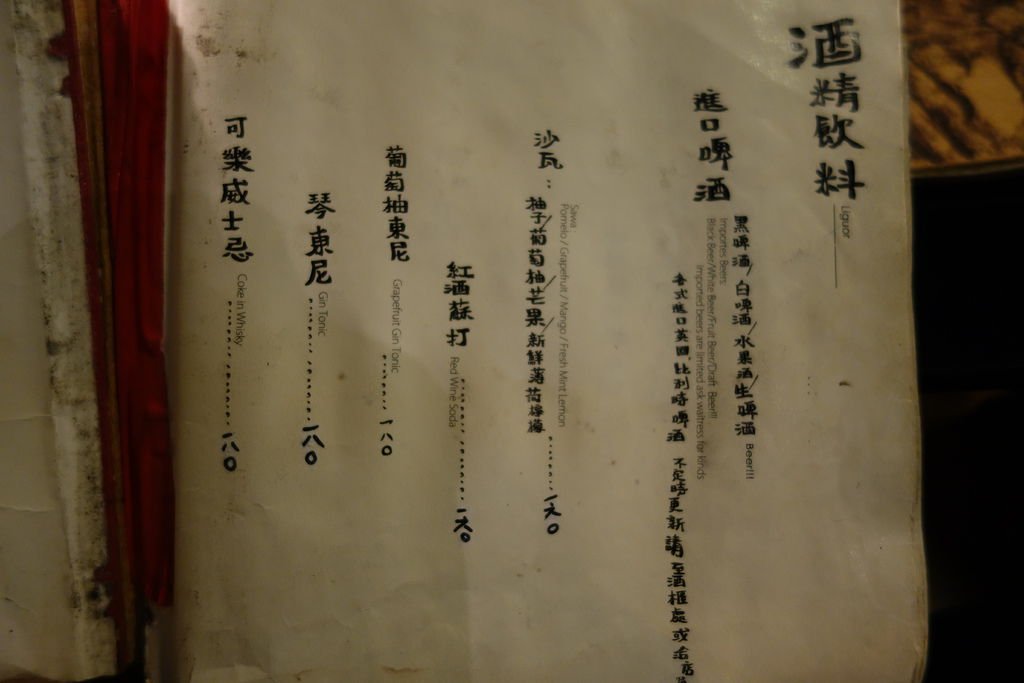 酒精飲料
Liquor
進口啤酒
黑啤酒/白啤酒/水果酒/生啤酒 Beer!!!
Importes Beers:
Black Beer/White Beer/Fruit Beer/Draft Beer!!!
Imported beers are limited ask waitress for kinds
各式進口英國.比利時啤酒 不定時更新請至酒櫃處或洽店
沙瓦:
Sawa:
Pomelo / Grapefruit / Mango / Fresh Mint Lemon
柚子/葡萄柚/芒果/新鮮薄荷檸檬..........一六0
紅酒蘇打 Red Wine Soda..........一六0
葡萄柚東尼 Grapefruit Gin Tonic..........一八0
琴東尼 Gin Tonic..........一八0
可樂威士忌 Coke in Whisky..........一八0